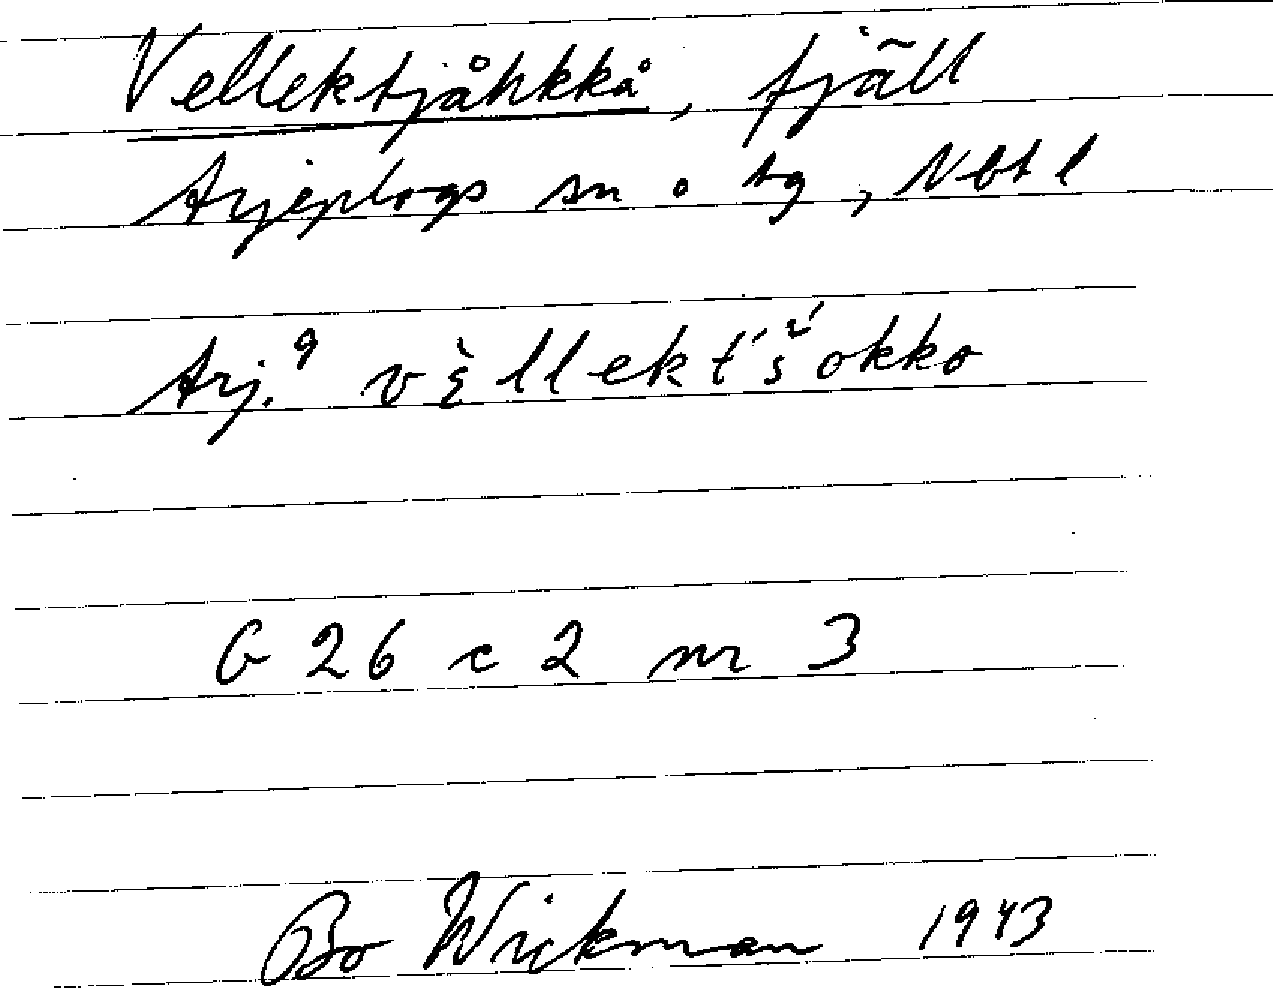 Vellektjåhkkå, fjäll
Arjeplogs sn o tg, Nbt l
Arj.9 vε̇llekt́š́okko
G 26 c 2 nr 3
Bo Wickman 1943